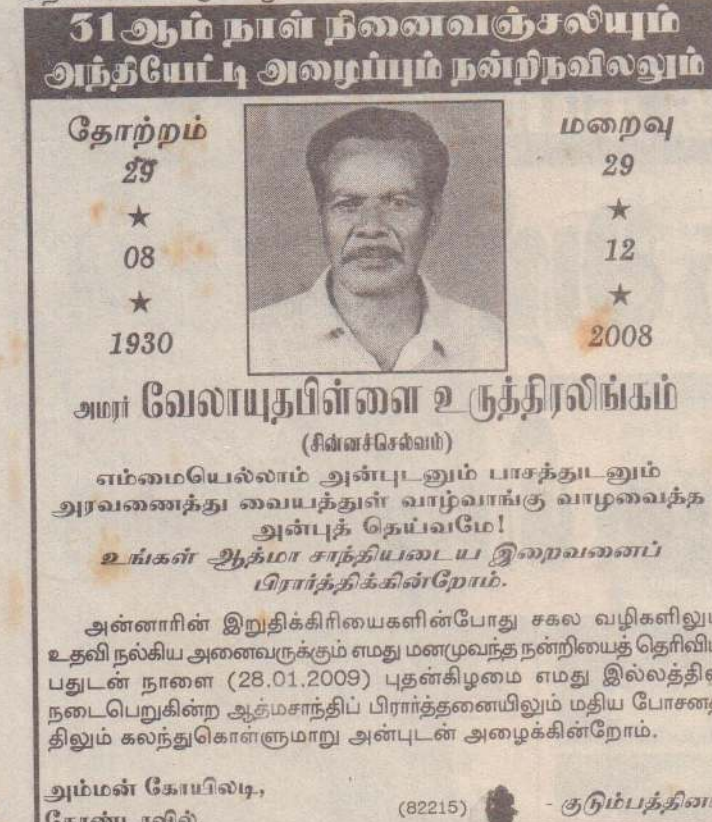 31ஆம் நாள் நினைவஞ்சலியும்
அந்தியேட்டி அழைப்பும் நன்றிநவிலலும்
தோற்றம்
29
★
08
★
1930
மறைவு
29
★
12
★
2008
அமரர் வேலாயுதபிள்ளை உருத்திரலிங்கம்
(சின்னச்செல்வம்)
எம்மையெல்லாம் அன்புடனும் பாசத்துடனும்
அரவணைத்து வையத்துள் வாழ்வாங்கு வாழவைத்த
அன்புத் தெய்வமே!
உங்கள் ஆத்மா சாந்தியடைய இறைவனைப்
பிரார்த்திக்கின்றோம்.
அன்னாரின் இறுதிக்கிரியைகளின்போது சகல வழிகளிலும்
உதவி நல்கிய அனைவருக்கும் எமது மனமுவந்த நன்றியைத் தெரிவிப்
பதுடன் நாளை (28.01.2009) புதன்கிழமை எமது இல்லத்தில்
நடைபெறுகின்ற ஆத்மசாந்திப் பிரார்த்தனையிலும் மதிய போசனத்
திலும் கலந்துகொள்ளுமாறு அன்புடன் அழைக்கின்றோம்.
அம்மன் கோயிலடி,
(82215) - குடும்பத்தினர்